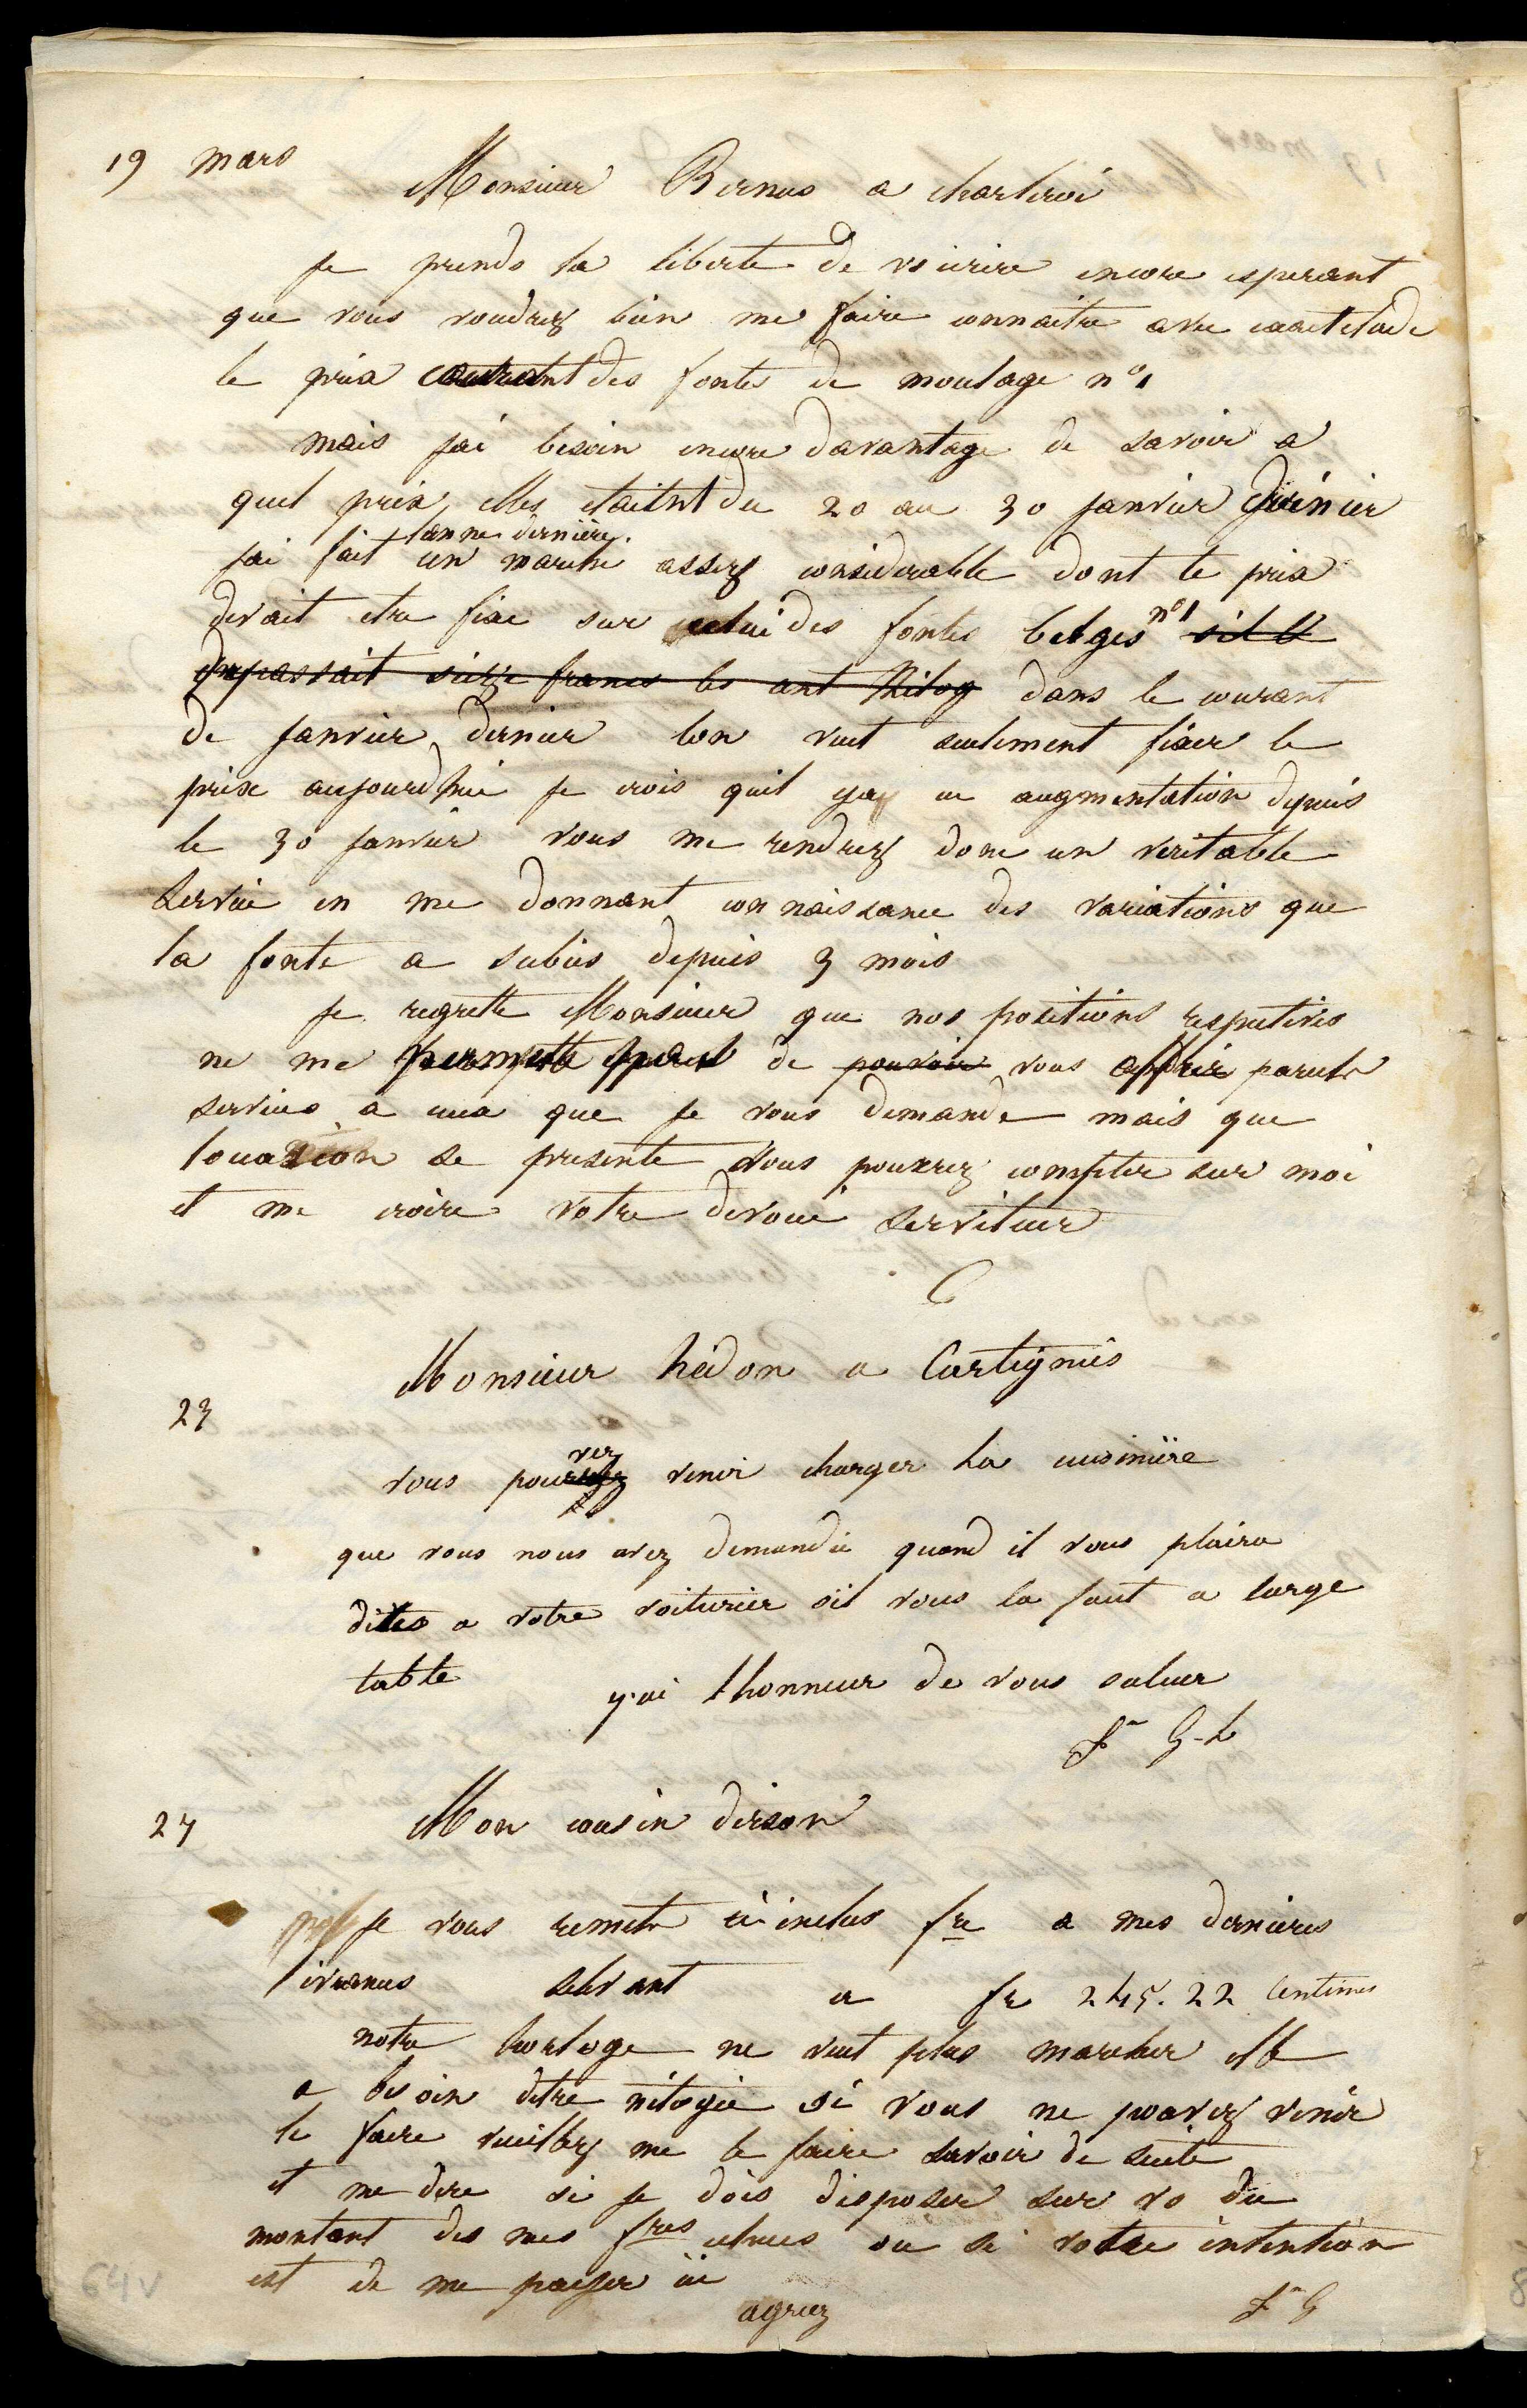 19 mars
Monsieur Bernus a charleroi
je prends la liberte de vs écrire encore esperant
que vous voudrez bien me faire connaitre avec exactitude
le prix courant des fontes de moulage n° 1
mais jai besoin encore davantage de savoir a
quel prix elles etaient du 20 au 30 janvier dernier
lanne dernière
jai fait un marche assez considerable dont le prix
devait etre fixe sur celui des fontes belges n° 1 sil
depassait seize francs les cent kilog dans le courant
de janvier dernier lon veut seulement fixer le
prix aujourdhui je crois quil y a eu augmentation depuis
le 30 janvier vous me rendrez donc un veritable
service en me donnant connaissance des variations que
la fonte a subies depuis 3 mois
je regrette Monsieur que nos positions respectives
ne me permette pas de pouvoir vous offrir pareils
services a ceux que je vous demande mais que
locasion se presente vous pourrez compter sur moi
et me croire votre devoué serviteur
G
Monsieur hédon a Cartignies
23
vous pouvez venir charger la cuisinière
que vous nous avez demandée quand il vous plaira
dites a votre voiturier sil vous la faut a large
table
j'ai lhonneur de vous saluer
Jn G-L
27
Mon cousin dirson
je vous remets ci inclus fre a mes dernieres
livrances selevant a fr 245.22 Centimes
notre horloge ne veut plus marcher elle
a besoin detre netoyée si vous ne pouvez venir
le faire veuillez me le faire savoir de suite
et me dire si je dois disposer sur vs du
montant des mes fres echues ou si votre intention
est de me payer ici
agreez
Jn G
64v